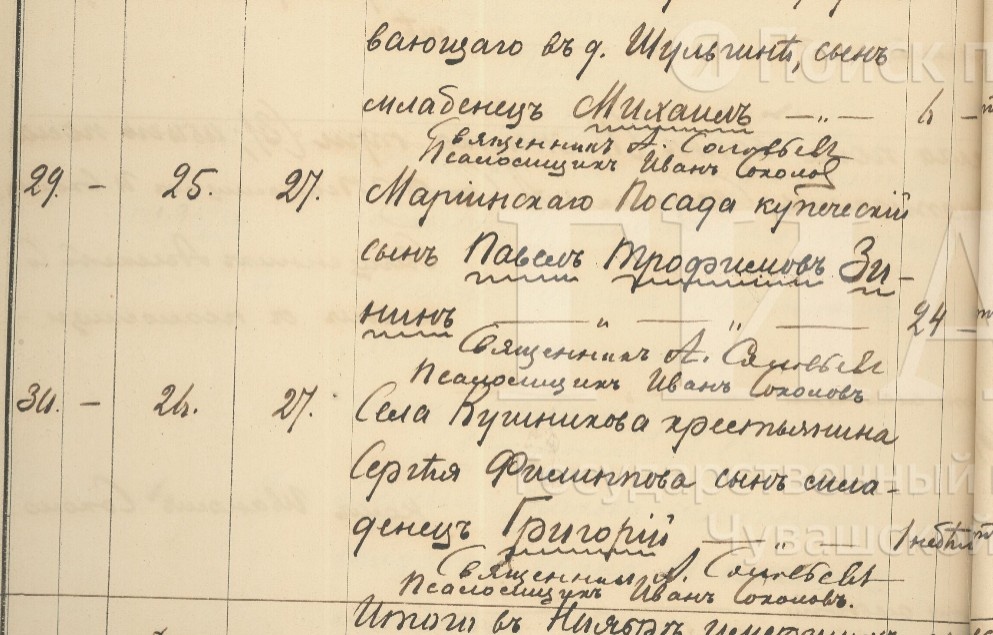 вающаго въ д. Шульгинѣ, сынъ
младенецъ Михаилъ — „ — 6 —
Священникъ А. Соловьевъ
Псаломщикъ Иванъ Соколов
29. — 25. 27. Маріинскаго Посада купеческій
сынъ Павелъ Трофимовъ Зи-
нинъ — „ — „ — 24 —
Священникъ А. Соловьевъ
Псаломщикъ Иванъ Соколовъ
30. — 26. 27. Села Кушникова крестьянина
Сергѣя Филиппова сынъ мла-
денецъ Григорій — „ — 1 недѣл
Священникъ А. Соловьевъ
Псаломщикъ Иванъ Соколовъ.
Итого въ Ноябрѣ
Поиск
ГИА
Государственный
Чувашской